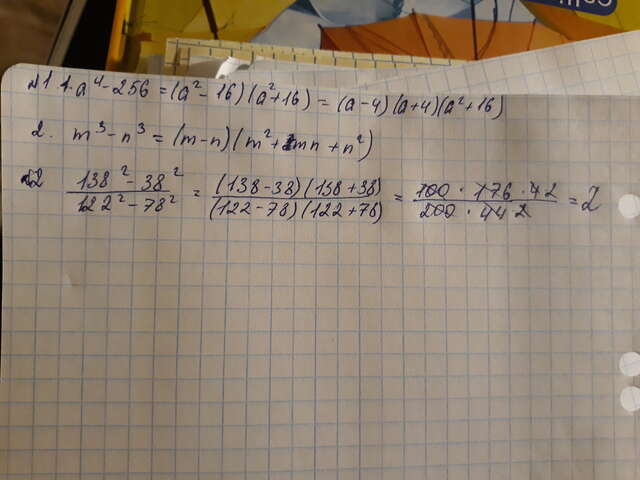 №1 1. a⁴ - 256 = (a² - 16)(a² + 16) = (a - 4)(a + 4)(a² + 16)
2. m³ - n³ = (m - n)(m² + mn + n²)
№2 138² - 38² / 122² - 78² = (138 - 38)(138 + 38) / (122 - 78)(122 + 78) = 100 · 176 · 42 / 200 · 44 2 = 2